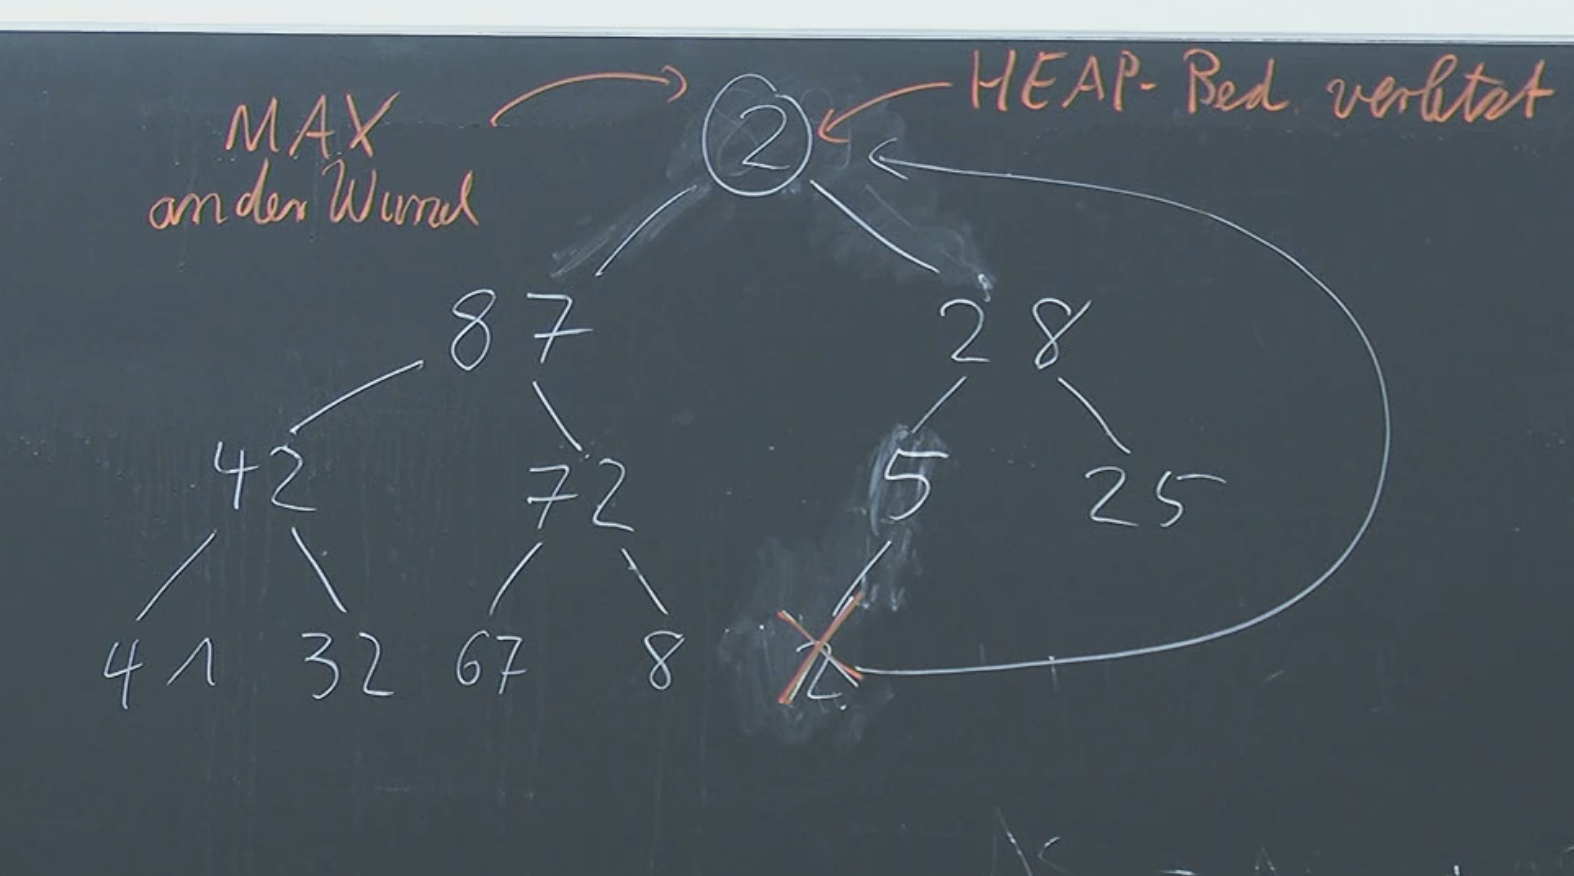 HEAP-Bed verletzt
MAX
an der Wurzel
2
87 28
42 72 5 25
41 32 67 8 2